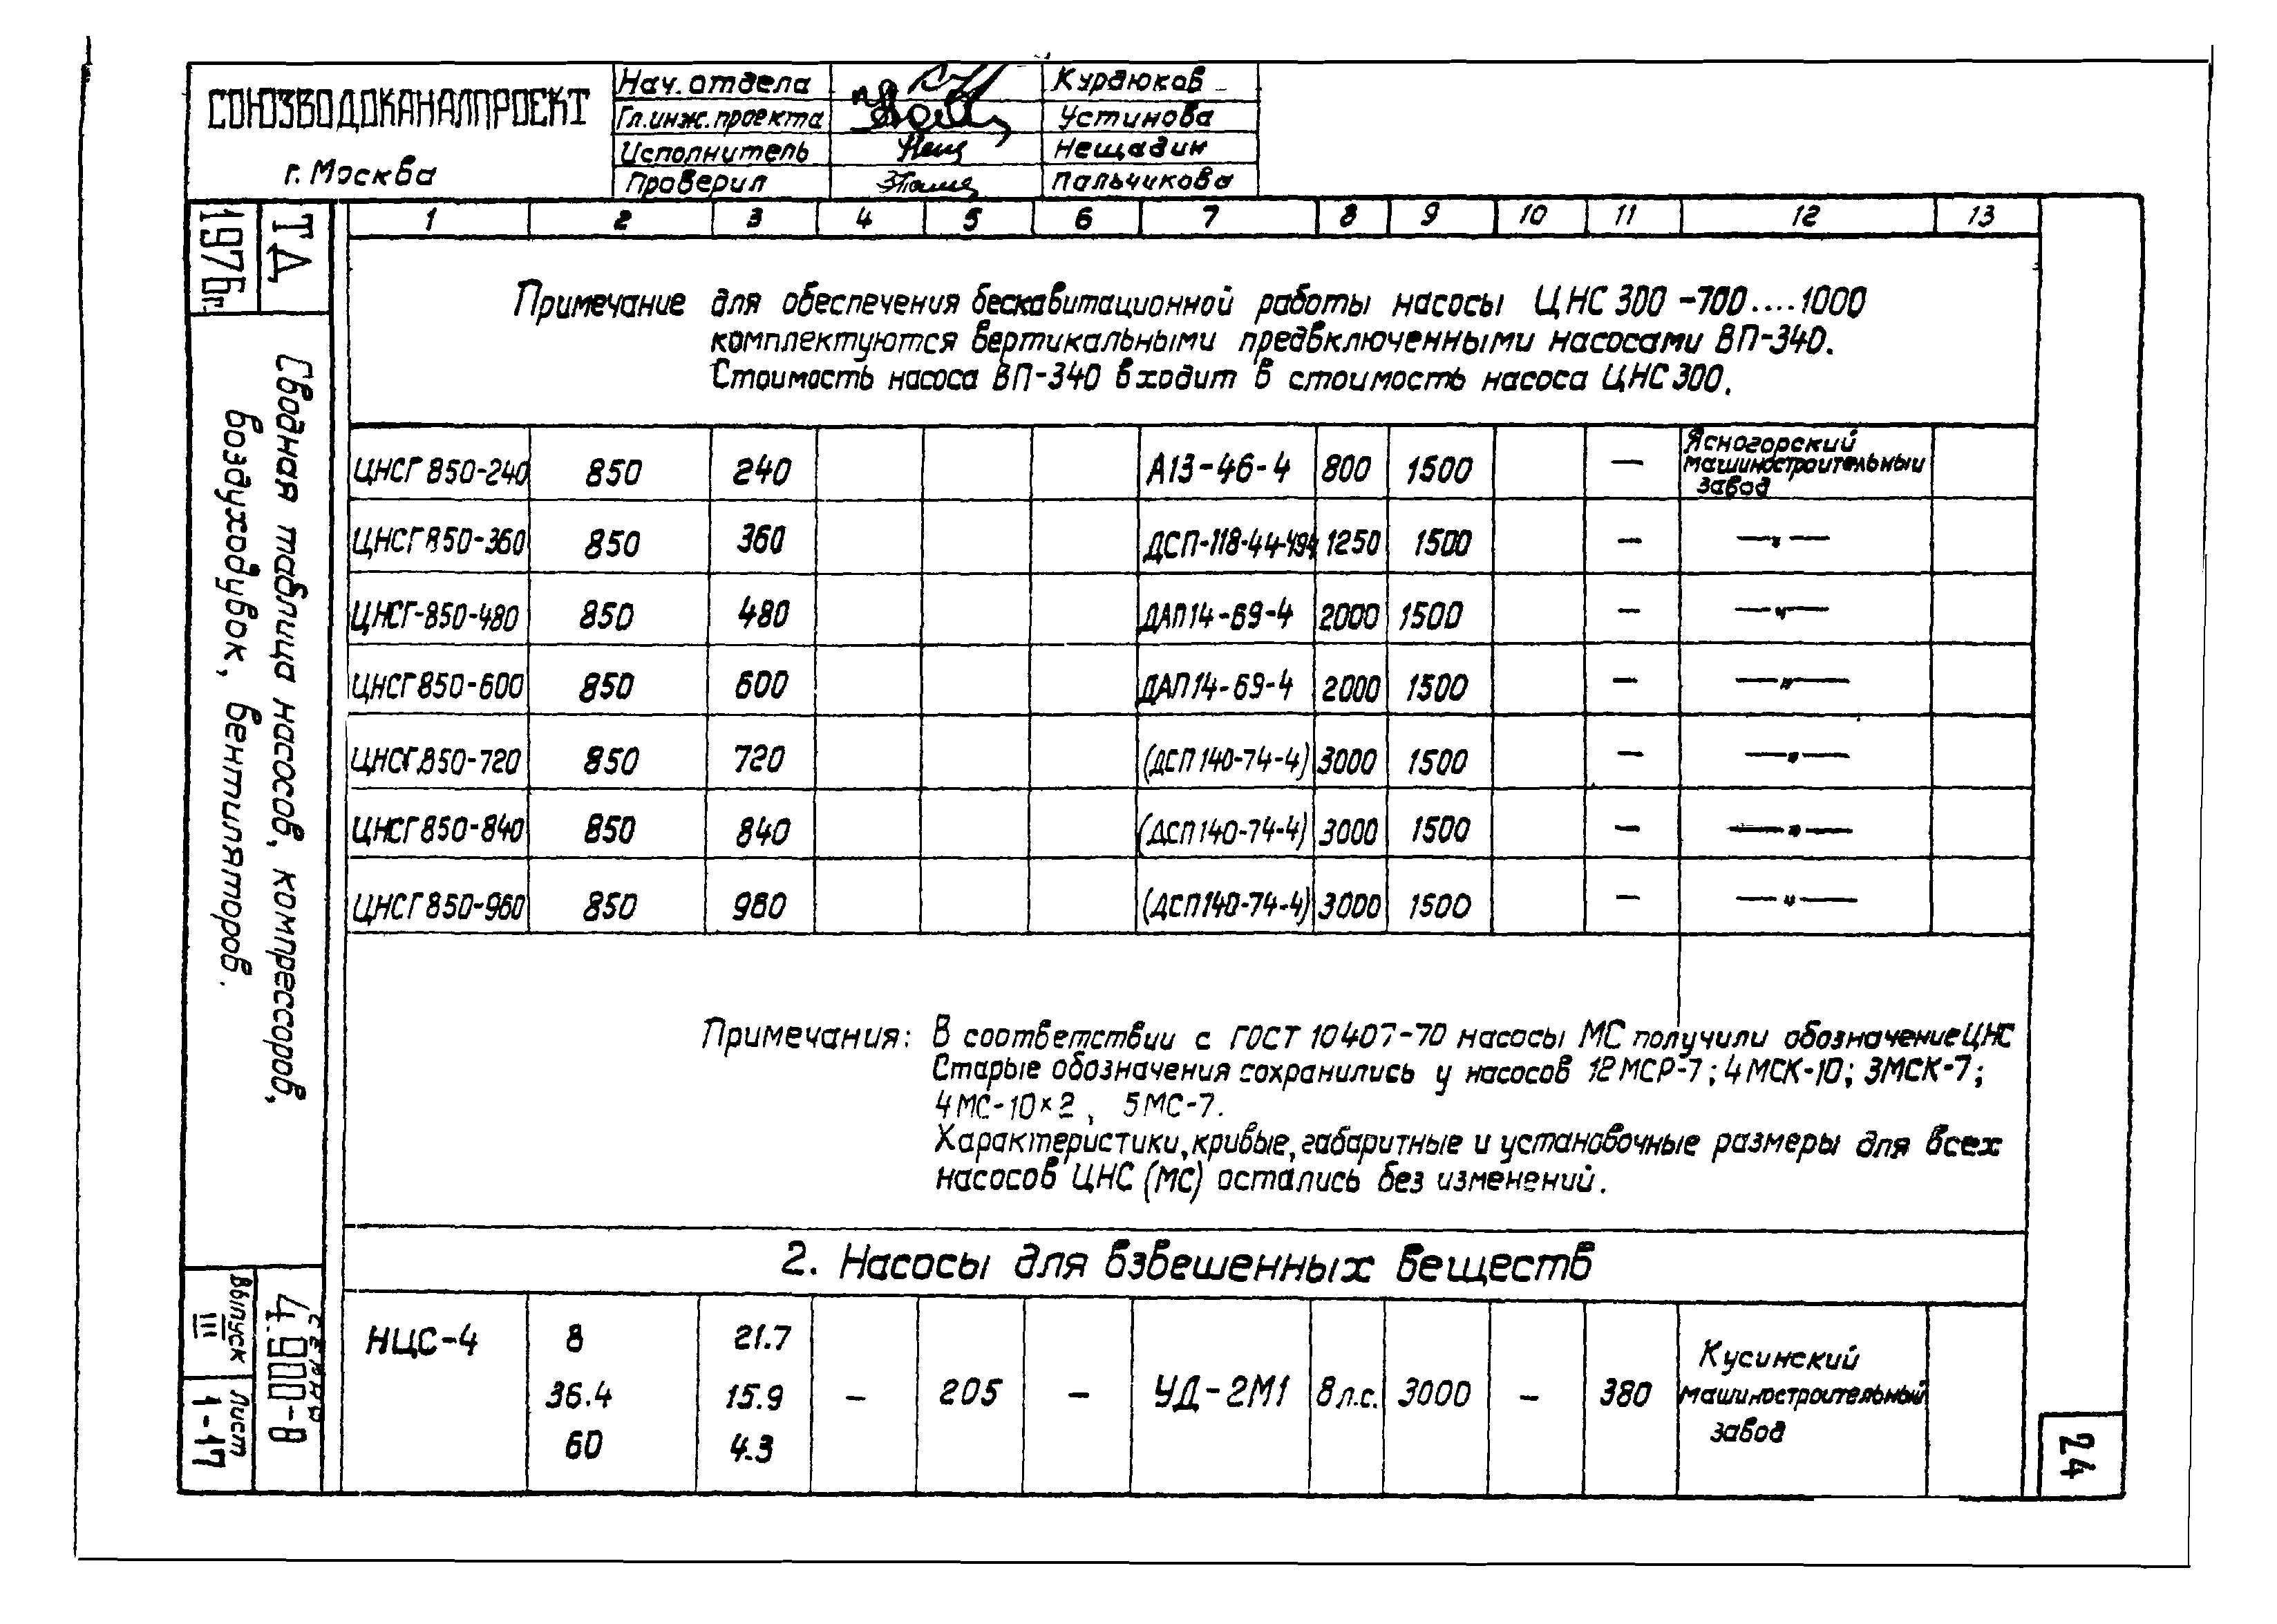 СОЮЗВОДОКАНАЛПРОЕКТ
г. Москва
Нач. отдела Курдюков
Гл. инж. проекта Устинова
Исполнитель Нещадин
Проверил Пальчикова
ТД
1976г.
Сводная таблица насосов, компрессоров,
воздуходувок, вентиляторов.
Серия
4.900-8
Выпуск III
Лист 1-17
1 2 3 4 5 6 7 8 9 10 11 12 13
Примечание для обеспечения бескавитационной работы насосы ЦНС 300 -700....1000
комплектуются вертикальными предвключенными насосами ВП-340.
Стоимость насоса ВП-340 входит в стоимость насоса ЦНС 300.
ЦНСГ 850-240 850 240 А13-46-4 800 1500 — Ясногорский
машиностроительный
завод
ЦНСГ 850-360 850 360 ДСП-118-44-4 1250 1500 — —"—
ЦНСГ-850-480 850 480 ДАП14-69-4 2000 1500 — —"—
ЦНСГ 850-600 850 600 ДАП14-69-4 2000 1500 — —"—
ЦНСГ 850-720 850 720 (ДСП 140-74-4) 3000 1500 — —"—
ЦНСГ 850-840 850 840 (ДСП 140-74-4) 3000 1500 — —"—
ЦНСГ 850-960 850 960 (ДСП 140-74-4) 3000 1500 — —"—
Примечания: В соответствии с ГОСТ 10407-70 насосы МС получили обозначение ЦНС
Старые обозначения сохранились у насосов 12МСР-7; 4МСК-10; 3МСК-7;
4МС-10×2, 5МС-7.
Характеристики, кривые, габаритные и установочные размеры для всех
насосов ЦНС (МС) остались без изменений.
2. Насосы для взвешенных веществ
НЦС-4 8 21.7
36.4 15.9 — 205 — УД-2М1 8 л.с. 3000 — 380 Кусинский
машиностроительный
завод
60 4.3
24